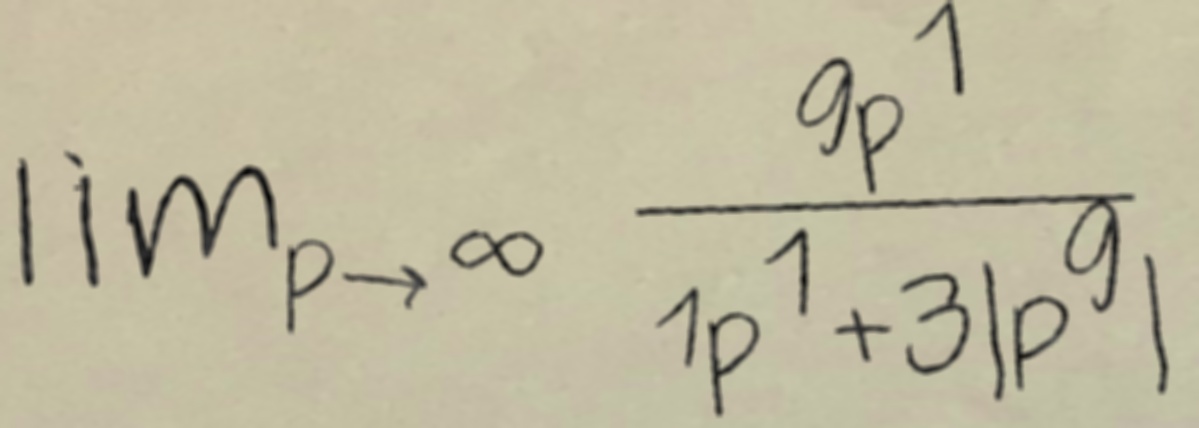 \lim_{p \to \infty} \frac{9p^1}{1p^1 + 3|p^9|}